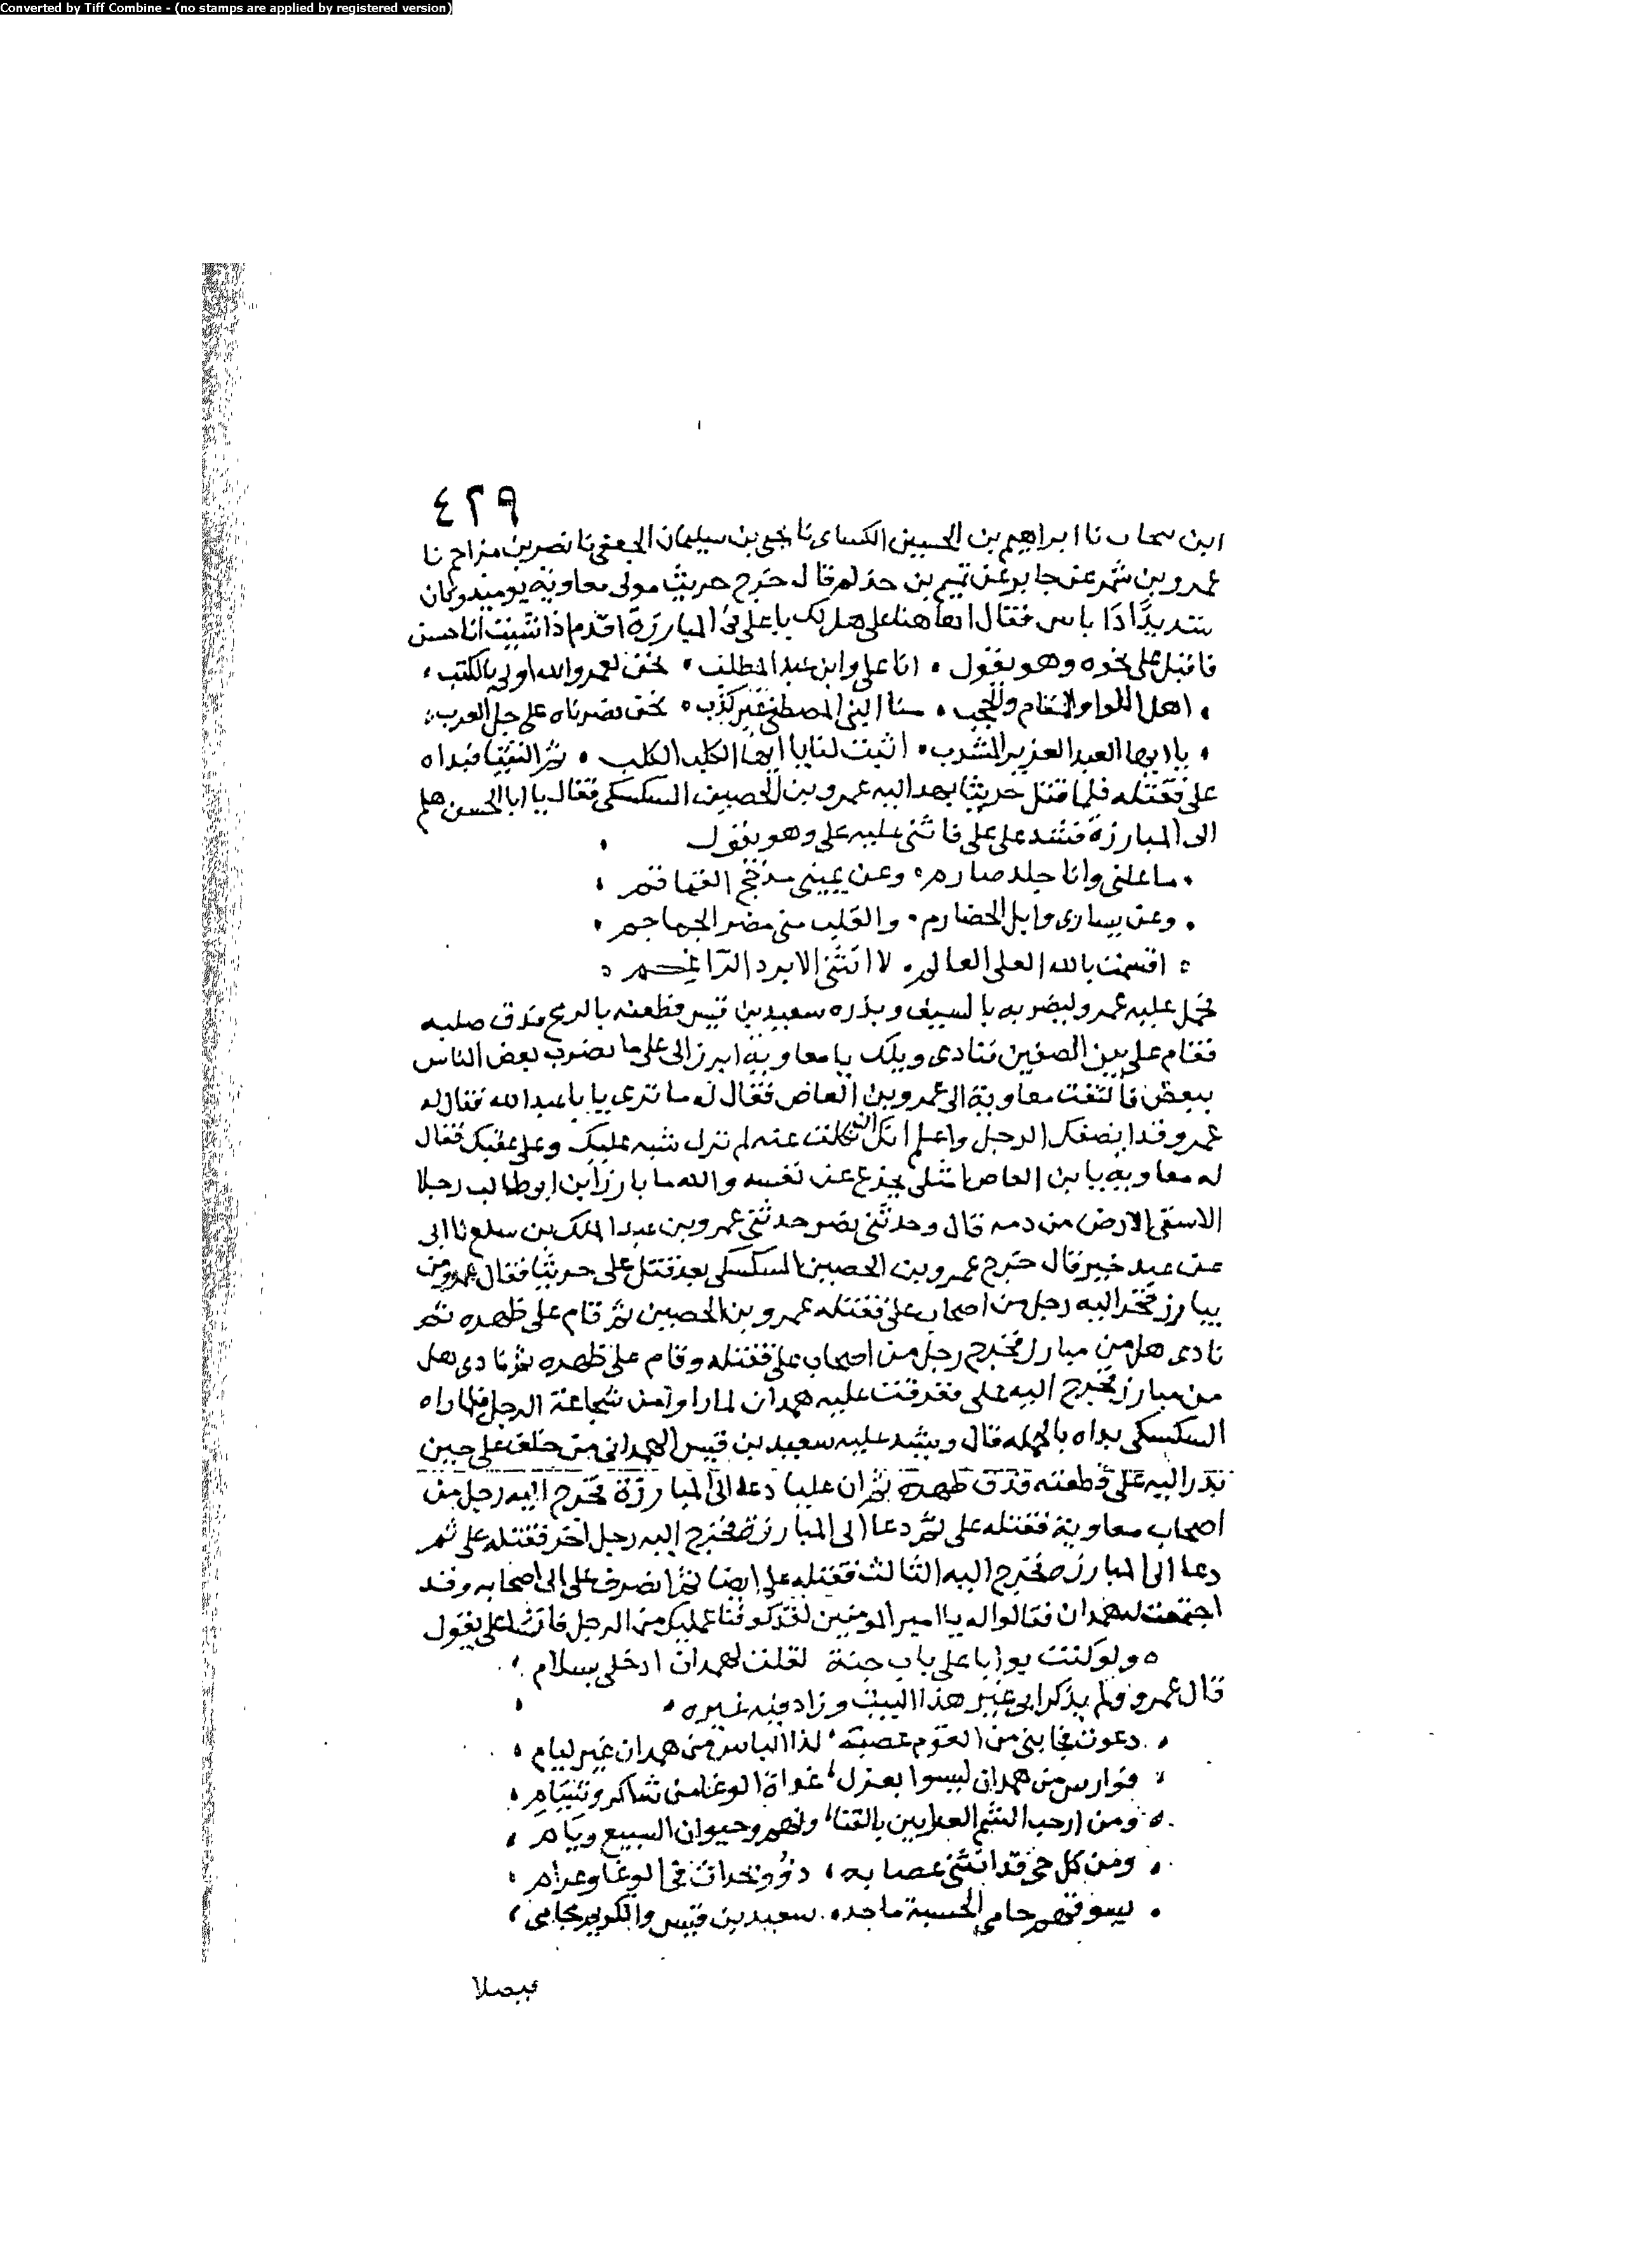 Converted by Tiff Combine - (no stamps are applied by registered version)
٤٢٩
ابن سحاب نا ابراهيم بن الحسين الكساى نا يحيى بن سليمان الجعفى نا نصر بن مزاحم نا
عمرو بن شمر عن جابر عن تميم بن حذلم قال خرج حريث مولى معاوية يوميذ وكان
شديدًا ذا باس فقال اهاهنا على هل لك يا على فى المبارزة اقدم اذا شيت انا حسن
فاقبل على نحوه وهو يقول • انا على وابن عبد المطلب • نحن لعمرو الله اولى بالكتب •
• اهل اللوا والمقام والحجب • منا النبى المصطفى غير كذب • نحن نصرناه على جل العرب •
• يا ايها العبد العزيز المشرب • اثبت لنا يا ايها الكلب الكلب • ثم التقيا فبداه
على فقتله فلما قتل حريثا بهد اليه عمرو بن الحصين السكسكى فقال يا ابا الحسن هلم
الى المبارزة فشد على على فاثنى عليه على وهو يقول •
• ما علتى وانا جلد صارم • وعن يمينى مذحج القماقم •
• وعن يسارى وايل الخضارم • والقلب منى مضر الجماجم •
• اقسمت بالله العلى العالم • لا انثنى الا برد الراغم •
فحمل عليه عمرو ليضربه بالسيف وبدره سعيد بن قيس فطعنه بالرمح فدق صلبه
فقام على بين الصفين فنادى ويلك يا معاوية ابرز الى على ما يضرب بعض الناس
ببعض فالتفت معاوية الى عمرو بن العاص فقال له ما ترى يا با عبد الله فقال له
عمرو قد انصفك الرجل واعلم انك ان نكلت عنه لم تزل شبه عليك وعلى عقبك فقال
له معاوية يا بن العاص امثلى يخدع عن نفسه والله ما بارز ابن ابو طالب رجلا
الا سقى الارض من دمه قال وحدثنى نصر حدثنى عمرو بن عبد الملك بن سلع نا ابى
عن عبد خير قال خرج عمرو بن الحصين السكسكى بعد قتل على حريثا فقال عمرو من
يبارز فخر اليه رجل من اصحاب على فقتله عمرو بن الحصين ثم قام على ظهره ثم
نادى هل من مبارز فخرج رجل من اصحاب على فقتله وقام على ظهره ثم نادى هل
من مبارز فخرج اليه على ففرقت عليه همدان لما راوا من شجاعة الرجل فلما راه
السكسكى بداه بالحمله قال ويشد عليه سعيد بن قيس الهمدانى من خلف على حين
بدر اليه على فطعنه فدق ظهره ثم ان عليا دعا الى المبارزة فخرج اليه رجل من
اصحاب معاوية فقتله على ثم دعا الى المبارزة فخرج اليه رجل آخر فقتله على ثم
دعا الى المبارزه فخرج اليه الثالث فقتله على ايضا ثم انصرف على الى اصحابه وقد
اجتمعت همدان فقالوا له يا امير المومنين لقد خوفنا عليك من الرجل فانشا على يقول
ه ولو كنت بوابا على باب جنة لقلت لهمدان ادخلى بسلام •
قال عمرو ولم يذكر ابى غير هذا البيت وزاد فيه غيره •
• دعوت فجابنى من القوم عصبة • لذا الباس من همدان غير ليام •
• فوارس من همدان ليسوا بعزل • غداة الوغا من شاكر وشبام •
ه ومن ارحب الشم المطاعين بالقنا • ونهم وحيوان السبيع ويام •
• ومن كل حى قد اتتنى عصابه • ذوو نجدات فى الوغا وعرام •
• يسوقهم حامى الحسبة ماجد • سعيد بن قيس والكريم يحامى •
فيصلا